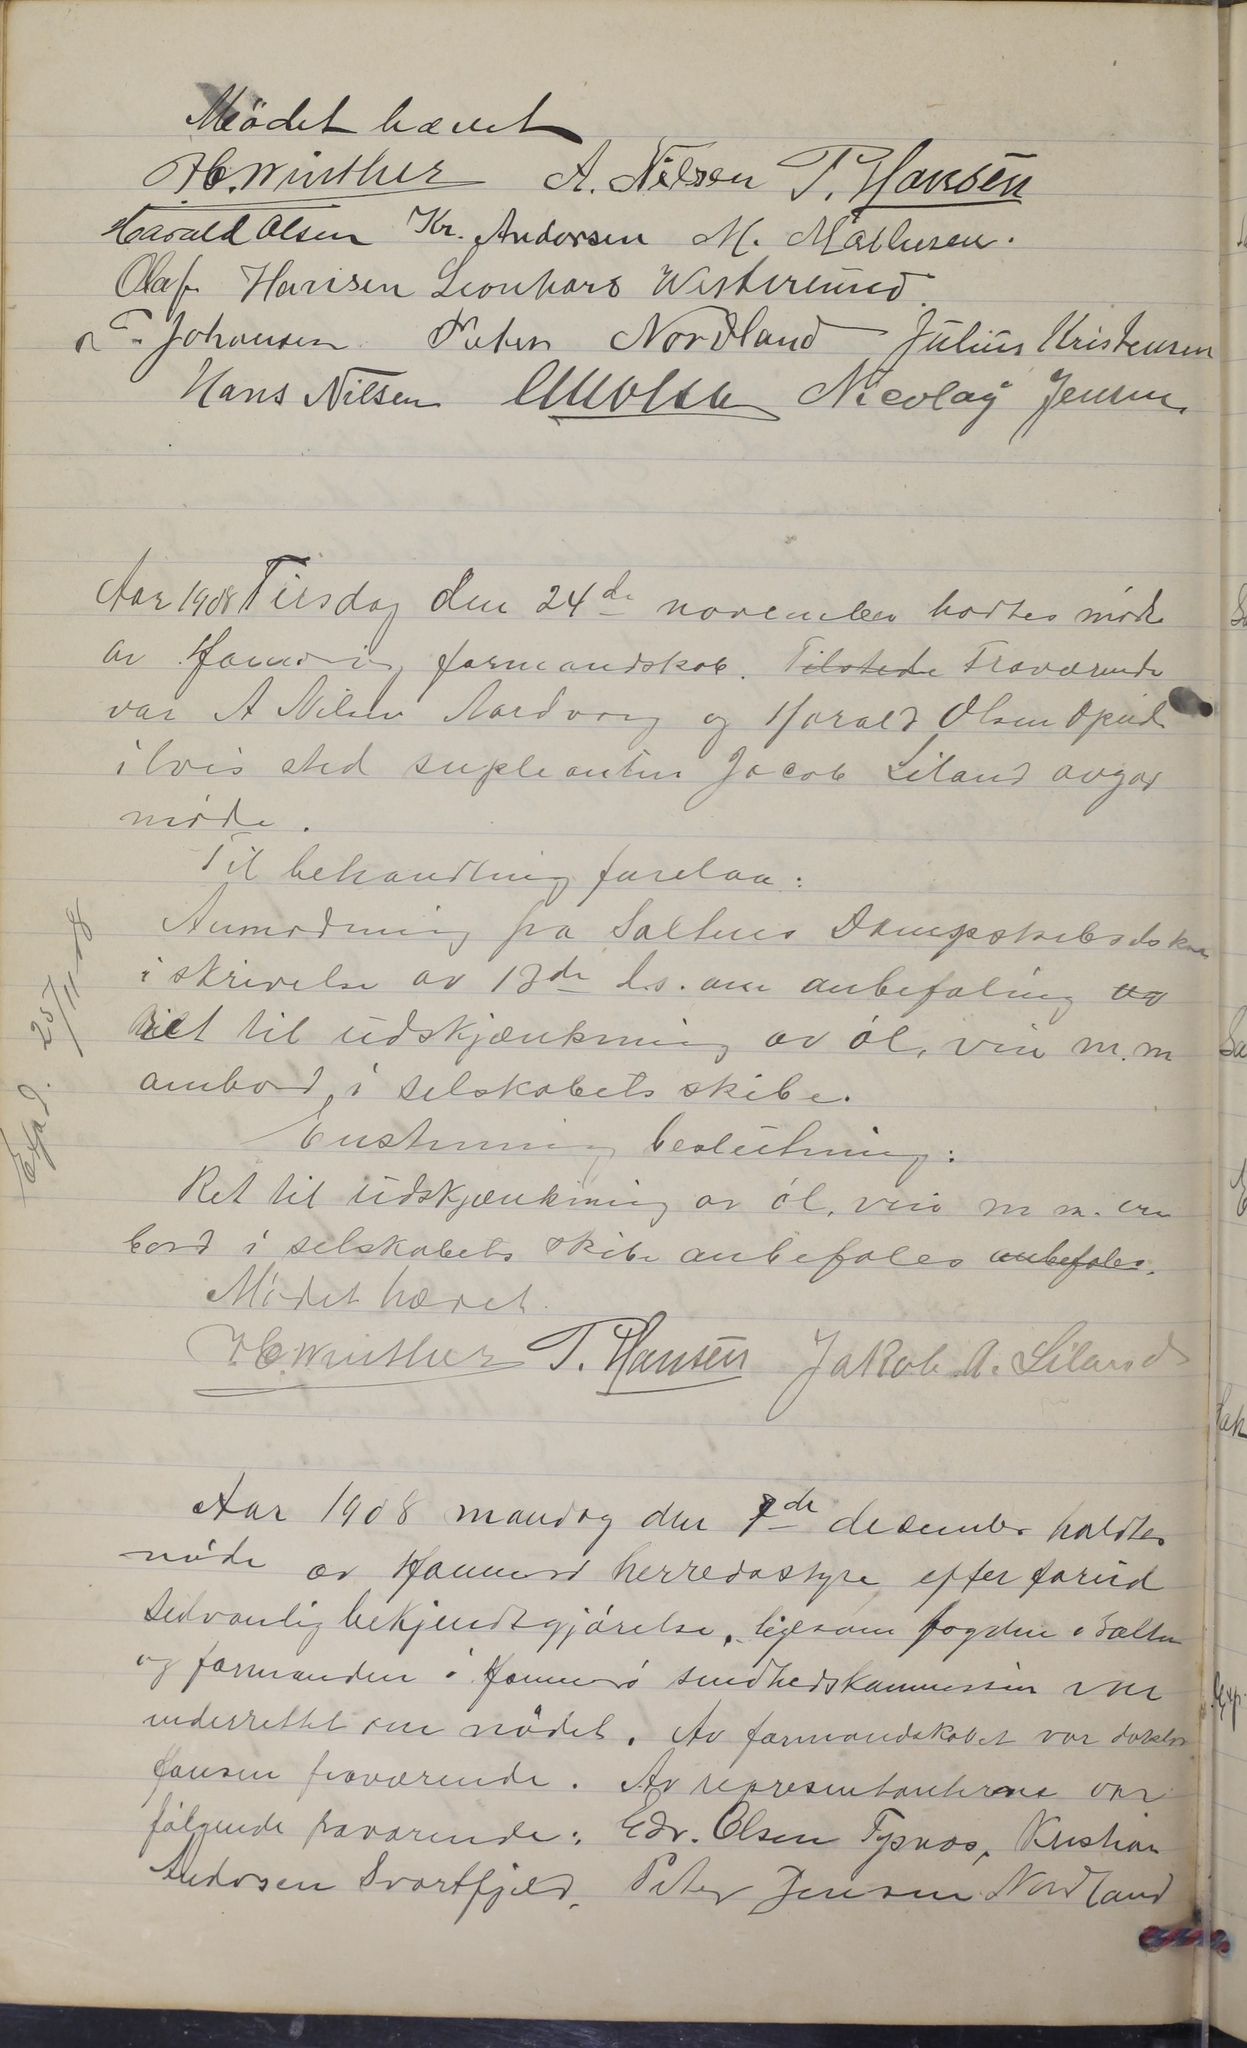 Mødet hævet
H.C. Winther A. Nilsen P. Hansen
Harald Olsen Kr. Andorsen M. Mathisen.
Olaf Hansen Leonhard Westerlund
T. Johansen Peter Nordland Julius Kristensen
Hans Nilsen Nicolay Jensen
Aar 1908 Tirsdag den 24de november holdtes møde
av Hamarøy formandskab. Tilstede Fraværende
var A Nilsen Nordvaag og Harald Olsen
i hvis sted supleanten Jacob Liland avgav
møde.
Til behandling forelaa:
Anmodning fra Saltens Dampskibsselskab
i skrivelse av 13de ds. om anbefaling av
ret til udskjænkning av øl, vin m.m
ombord i selskabets skibe.
Enstemmig beslutning:
Ret til udskjænkning av øl, vin m m. om
bord i selskabets skibe anbefales anbefales.
Mødet hævet.
H.C. Winther P. Hansen Jakob A. Liland
Exp d. 25/11-08
Aar 1908 mandag den 7de desember holdtes
møde av Hamarø herredsstyre efter forud
sedvanlig bekjendtgjørelse, ligesom fogden i Salten
og formanden i Hamarø sundhedskommission var
underrettet om mødet. Av formandskabet var doktor
Hansen fraværende. Av representanterne var
følgende fraværende: Edv. Olsen Kristian
Andorsen Svartfjeld, Peter Jensen Nordland